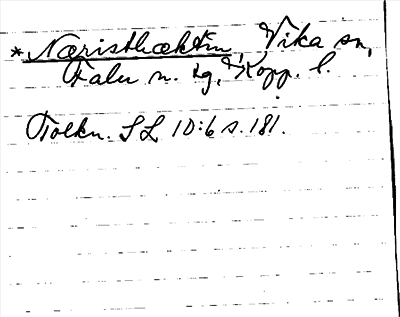 *Næristhækten, Vika sn,
Falu n. tg, Kopp. l.
Tolkn. SL 10:6 s. 181.